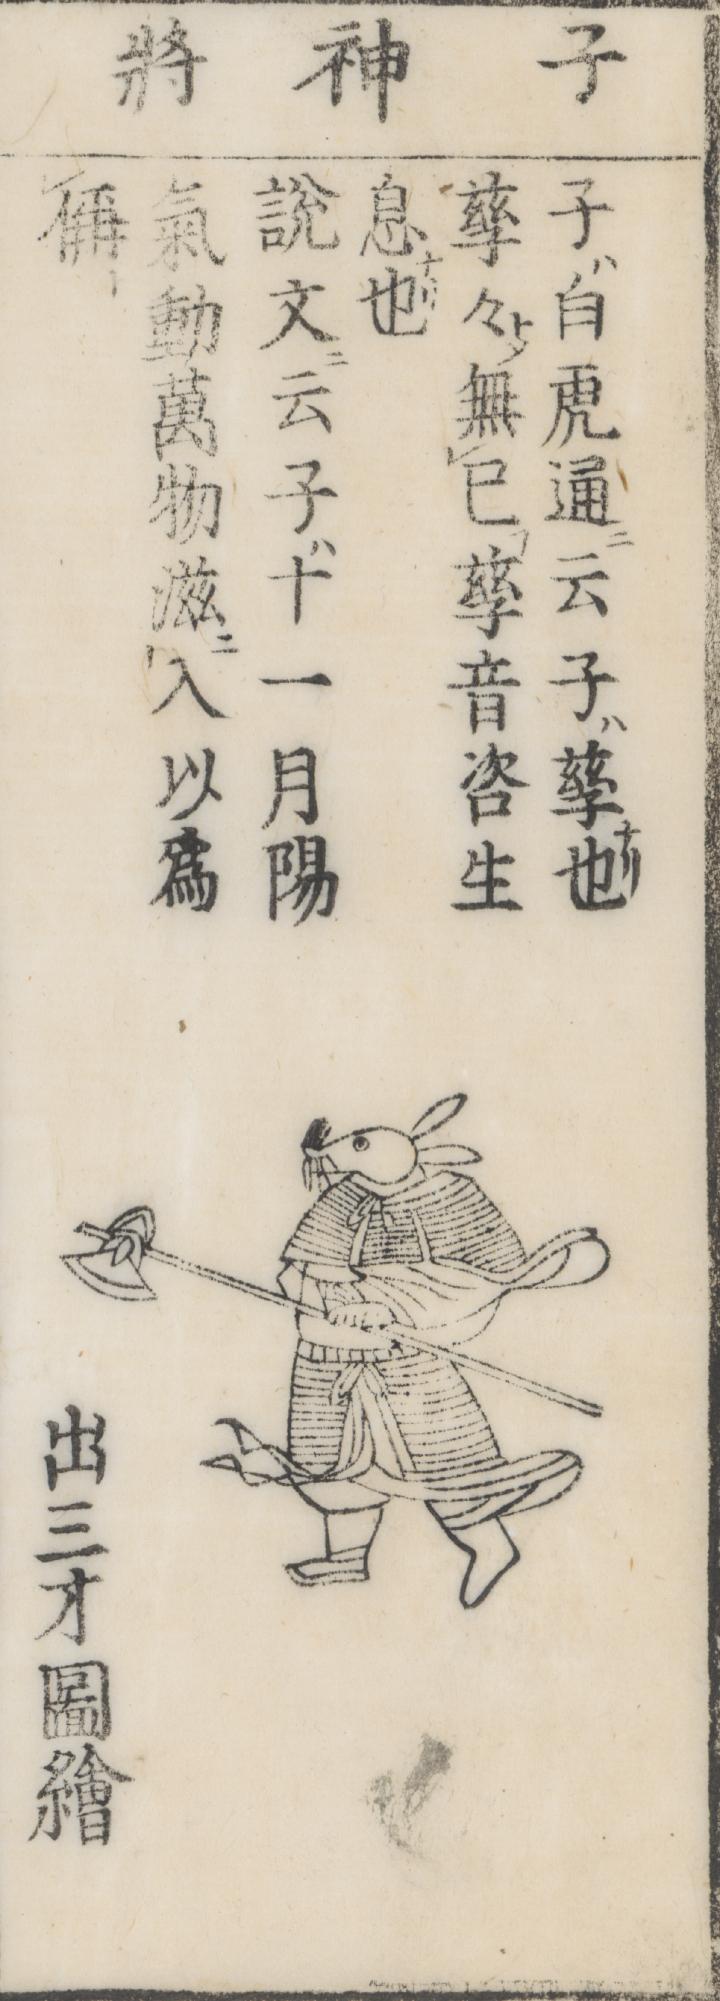 子神將
子ハ白虎通ニ云子ハ孳也ナリ
孳々トシ無已孳音咨生
息也ナリ
說文ニ云子ハ十一月陽
氣動萬物滋ニ入以爲
偁
出三才圖繪